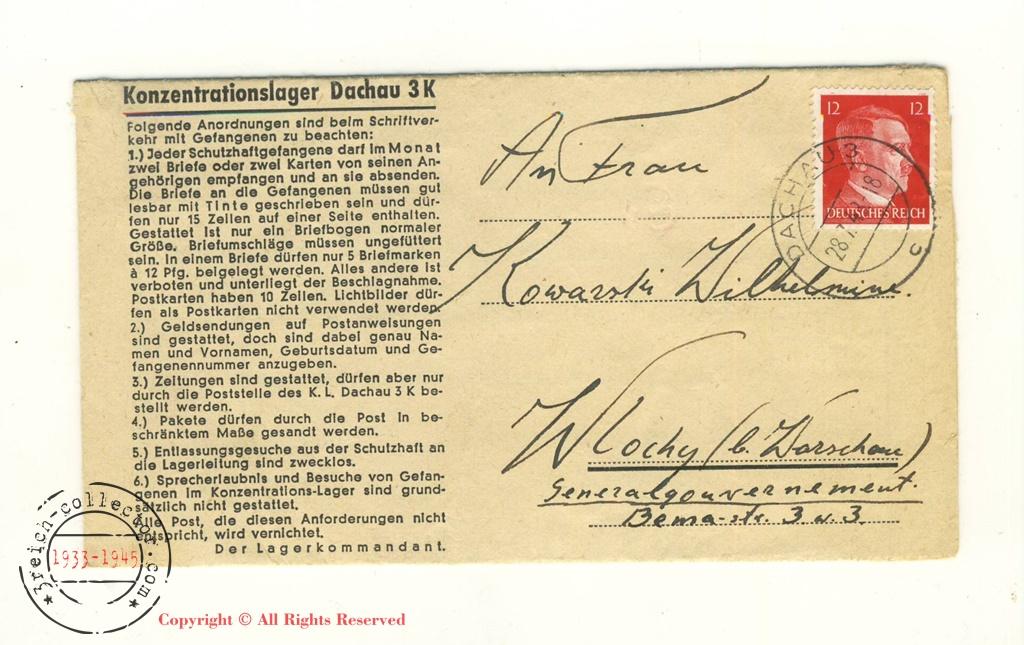 Konzentrationslager Dachau 3 K
Folgende Anordnungen sind beim Schriftver-
kehr mit Gefangenen zu beachten:
1.) Jeder Schutzhaftgefangene darf im Monat
zwei Briefe oder zwei Karten von seinen An-
gehörigen empfangen und an sie absenden.
Die Briefe an die Gefangenen müssen gut
lesbar mit Tinte geschrieben sein und dür-
fen nur 15 Zeilen auf einer Seite enthalten.
Gestattet ist nur ein Briefbogen normaler
Größe. Briefumschläge müssen ungefüttert
sein. In einem Briefe dürfen nur 5 Briefmarken
à 12 Pfg. beigelegt werden. Alles andere ist
verboten und unterliegt der Beschlagnahme.
Postkarten haben 10 Zeilen. Lichtbilder dür-
fen als Postkarten nicht verwendet werden.
2.) Geldsendungen auf Postanweisungen
sind gestattet, doch sind dabei genau Na-
men und Vornamen, Geburtsdatum und Ge-
fangenennummer anzugeben.
3.) Zeitungen sind gestattet, dürfen aber nur
durch die Poststelle des K. L. Dachau 3 K be-
stellt werden.
4.) Pakete dürfen durch die Post in be-
schränktem Maße gesandt werden.
5.) Entlassungsgesuche aus der Schutzhaft an
die Lagerleitung sind zwecklos.
6.) Sprecherlaubnis und Besuche von Gefan-
genen im Konzentrations-Lager sind grund-
sätzlich nicht gestattet.
Alle Post, die diesen Anforderungen nicht
entspricht, wird vernichtet.
Der Lagerkommandant.
An Frau
Kowarski Wilhelmine.
Wlochy (b. Warschau)
Generalgouvernement.
Bema-str. 3 w. 3.
12 12
DEUTSCHES REICH
DACHAU 3
c
3reich-collector.com
1933-1945
Copyright © All Rights Reserved